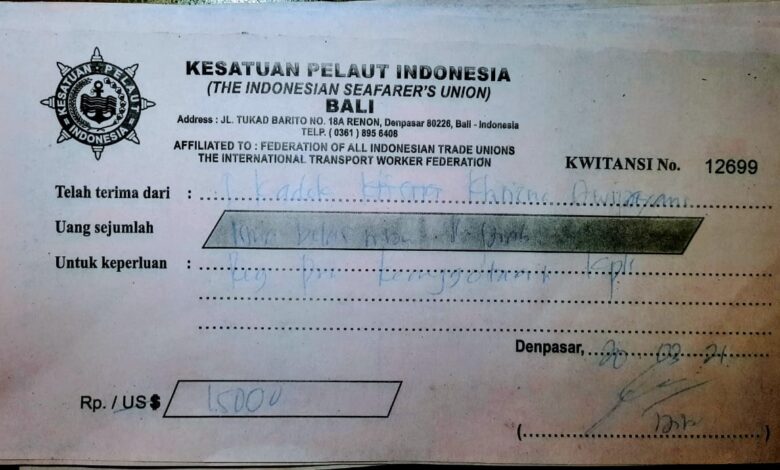 KESATUAN PELAUT
INDONESIA
KESATUAN PELAUT INDONESIA
(THE INDONESIAN SEAFARER'S UNION)
BALI
Address : JL. TUKAD BARITO NO. 18A RENON, Denpasar 80226, Bali - Indonesia
TELP. ( 0361 ) 895 6408
AFFILIATED TO : FEDERATION OF ALL INDONESIAN TRADE UNIONS
THE INTERNATIONAL TRANSPORT WORKER FEDERATION
KWITANSI No. 12699
Telah terima dari : I Kadek
Uang sejumlah belas
Untuk keperluan :
Denpasar, 20 03 21
Rp. / US $ 15000
(